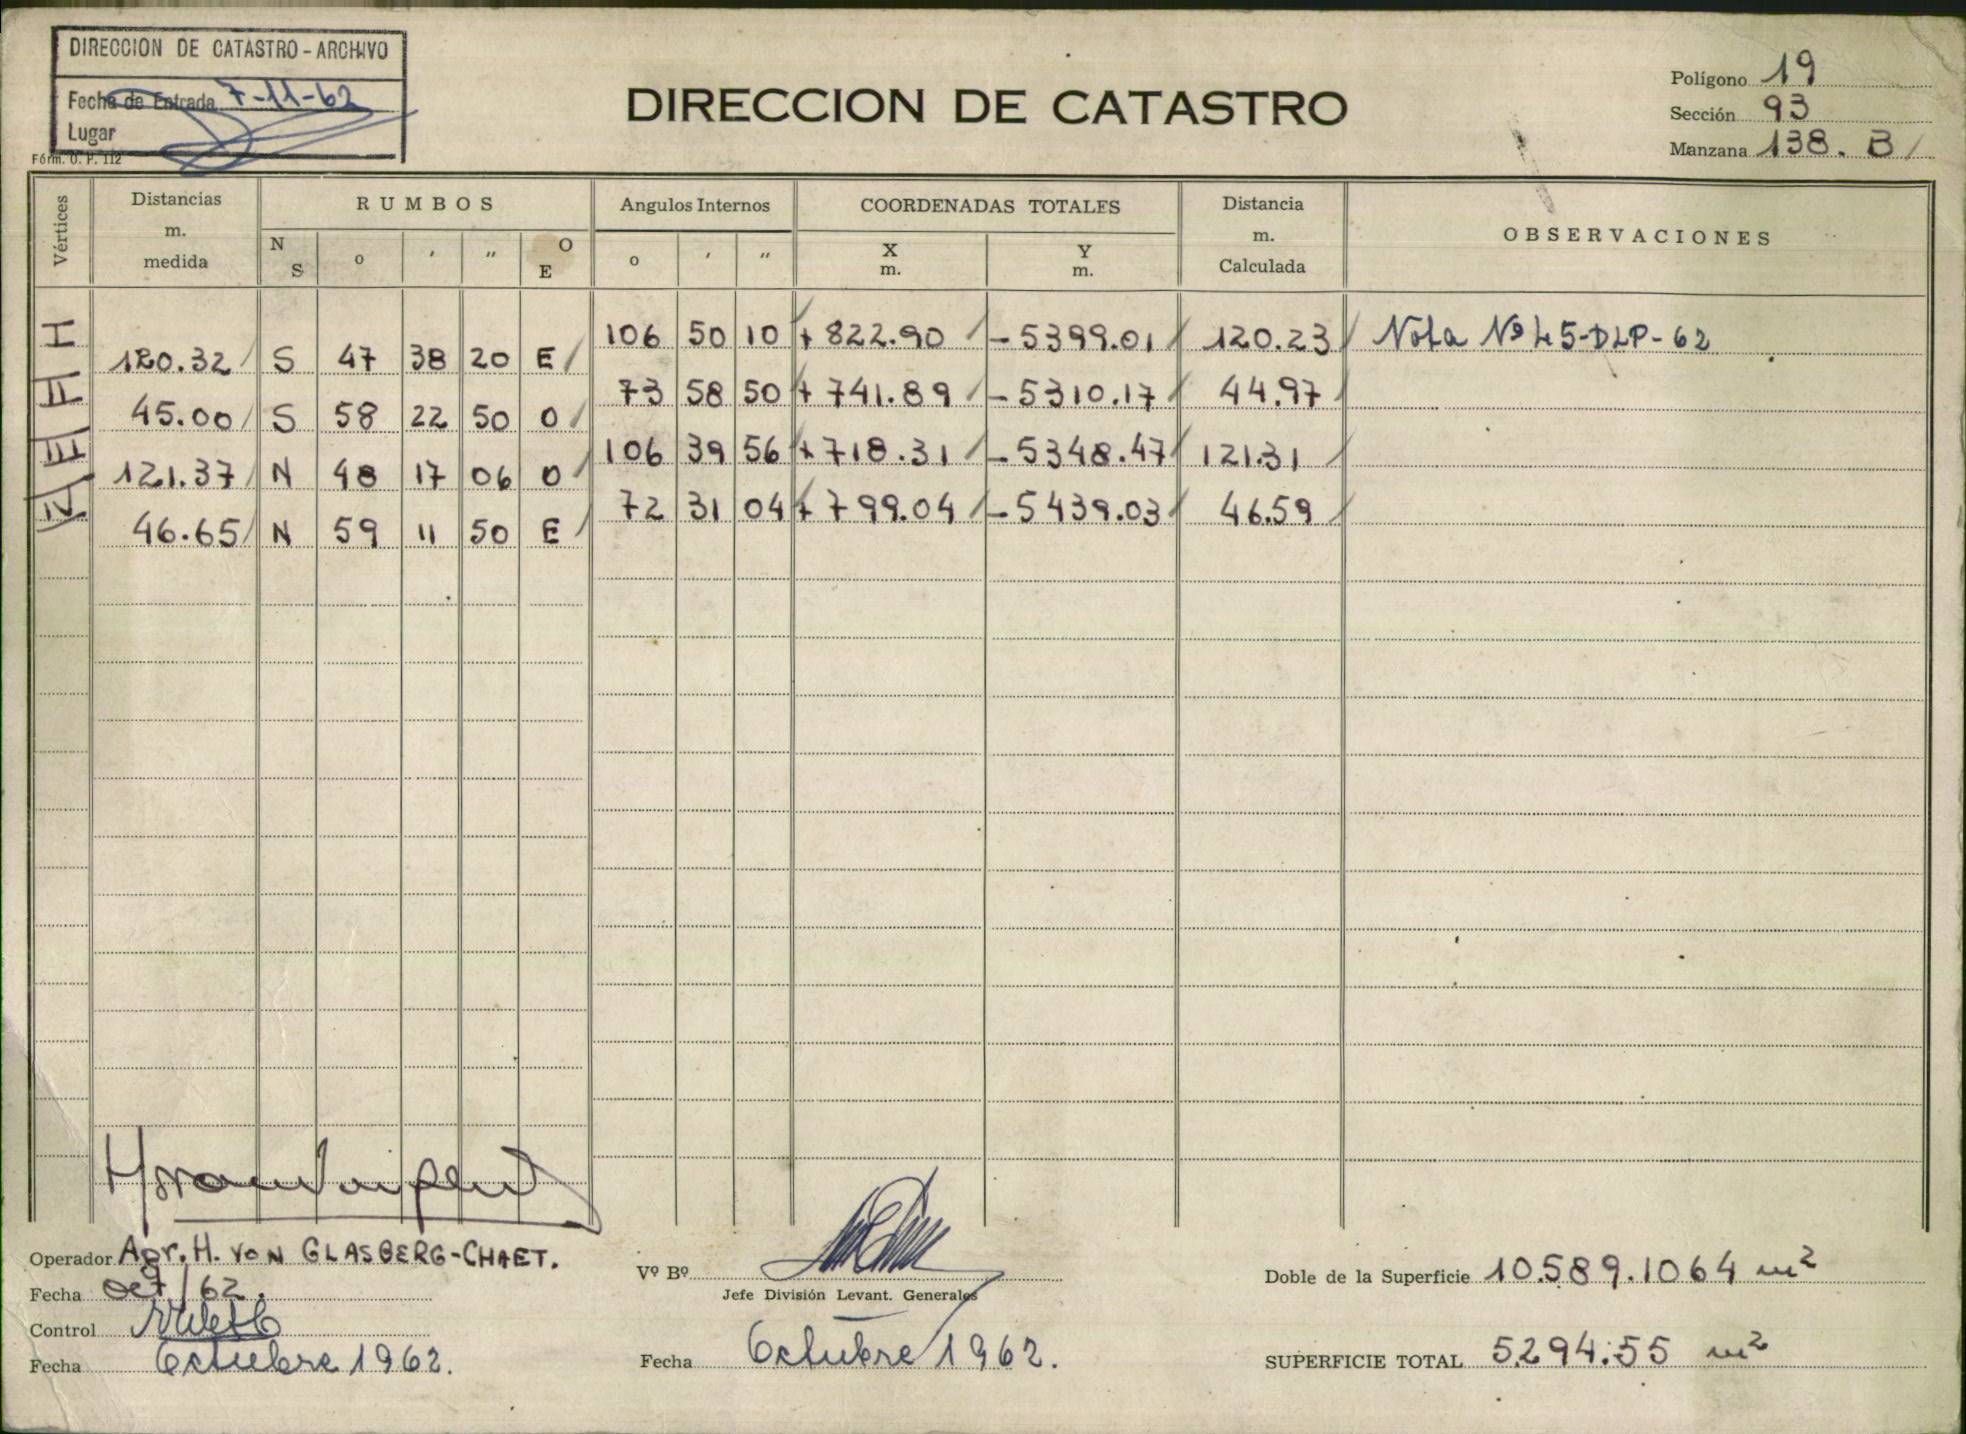 DIRECCION DE CATASTRO - ARCHIVO
Fecha de Entrada 7-11-62
Lugar
Fórm. O. P. 112
DIRECCION DE CATASTRO
Polígono 19
Sección 93
Manzana 138. B
Vértices Distancias m. medida RUMBOS Angulos Internos COORDENADAS TOTALES Distancia m. Calculada OBSERVACIONES
N S o ' " O E o ' " X m. Y m.
I 106 50 10 + 822.90 - 5399.01 120.23 Nota Nº 45-DLP-62
120.32 S 47 38 20 E
II 73 58 50 + 741.89 - 5310.17 44.97
45.00 S 58 22 50 O
III 106 39 56 + 718.31 - 5348.47 121.31
121.37 N 48 17 06 O
IV 72 31 04 + 799.04 - 5439.03 46.59
46.65 N 59 11 50 E
Operador Agr. H. VON GLASBERG-CHAET.
Fecha Oct/62.
Control
Fecha Octubre 1962.
Vº Bº
Jefe División Levant. Generales
Fecha Octubre 1962.
Doble de la Superficie 10.589.1064 m²
SUPERFICIE TOTAL 5.294.55 m²